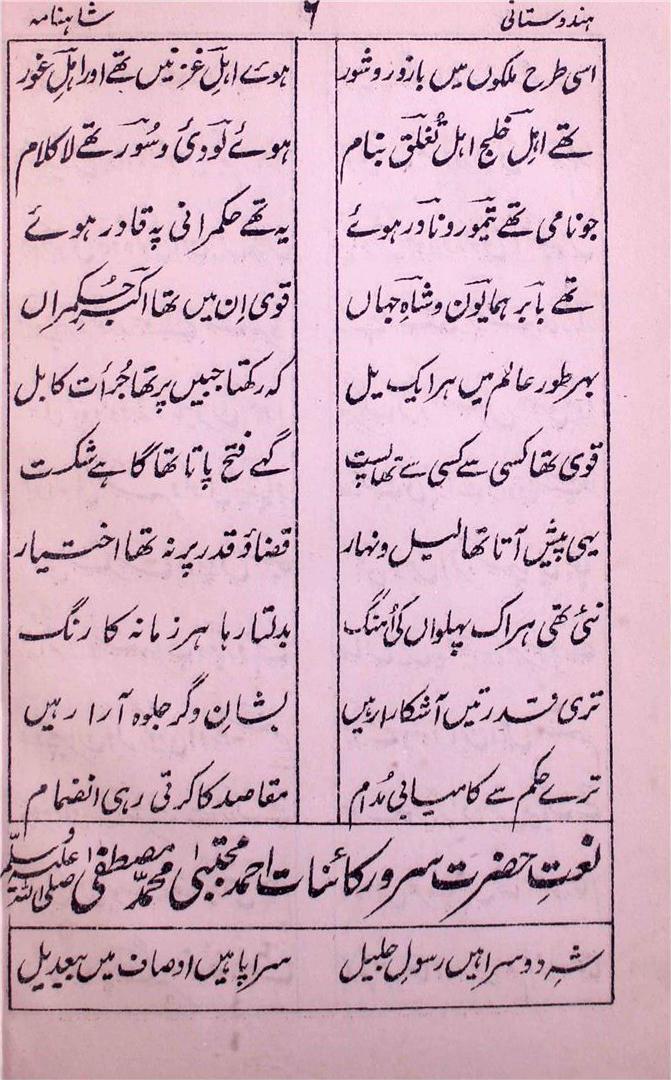 ہندوستانی ۶ شاہنامہ
اسی طرح ملکوں میں بازور و شور ہوئے اہلِ غزنیں تھے اور اہلِ غور
تھے اہلِ خلیج اہل تُغلق بنام ہوئے لَودیٔ و سُور تھے لاکلام
جو نامی تھے تیمور و نادر ہوئے یہ تھے حکمرانی پہ قادر ہوئے
تھے بابر ہمایون و شاہِ جہاں قوی اِن میں تھا اکبرِ حُکمراں
بہر طور عالم میں ہر ایک یل کہ رکھتا جبیں پر تھا جُرأت کا بل
قوی تھا کسی سے کسی سے تھا پست گہے فتح پاتا تھا گاہے شکست
یہی پیش آتا تھا لیل و نہار قضاؤ قدر پر نہ تھا اختیار
نئی تھی ہر اک پہلواں کی اُمنگ بدلتا رہا ہر زمانہ کا رنگ
تری قدرتیں آشکارا رہیں بشانِ دگر جلوہ آرا رہیں
ترے حکم سے کامیابی مُدام مقاصد کا کرتی رہی انضمام
نعتِ حضرت سرورِ کائنات احمد مجتبیٰ محمّد مصطفیٰ صلی اللہ علیہ وسلم
شہِ دوسرا ہیں رسولِ جلیل سراپا ہیں اوصاف میں بیعدیل